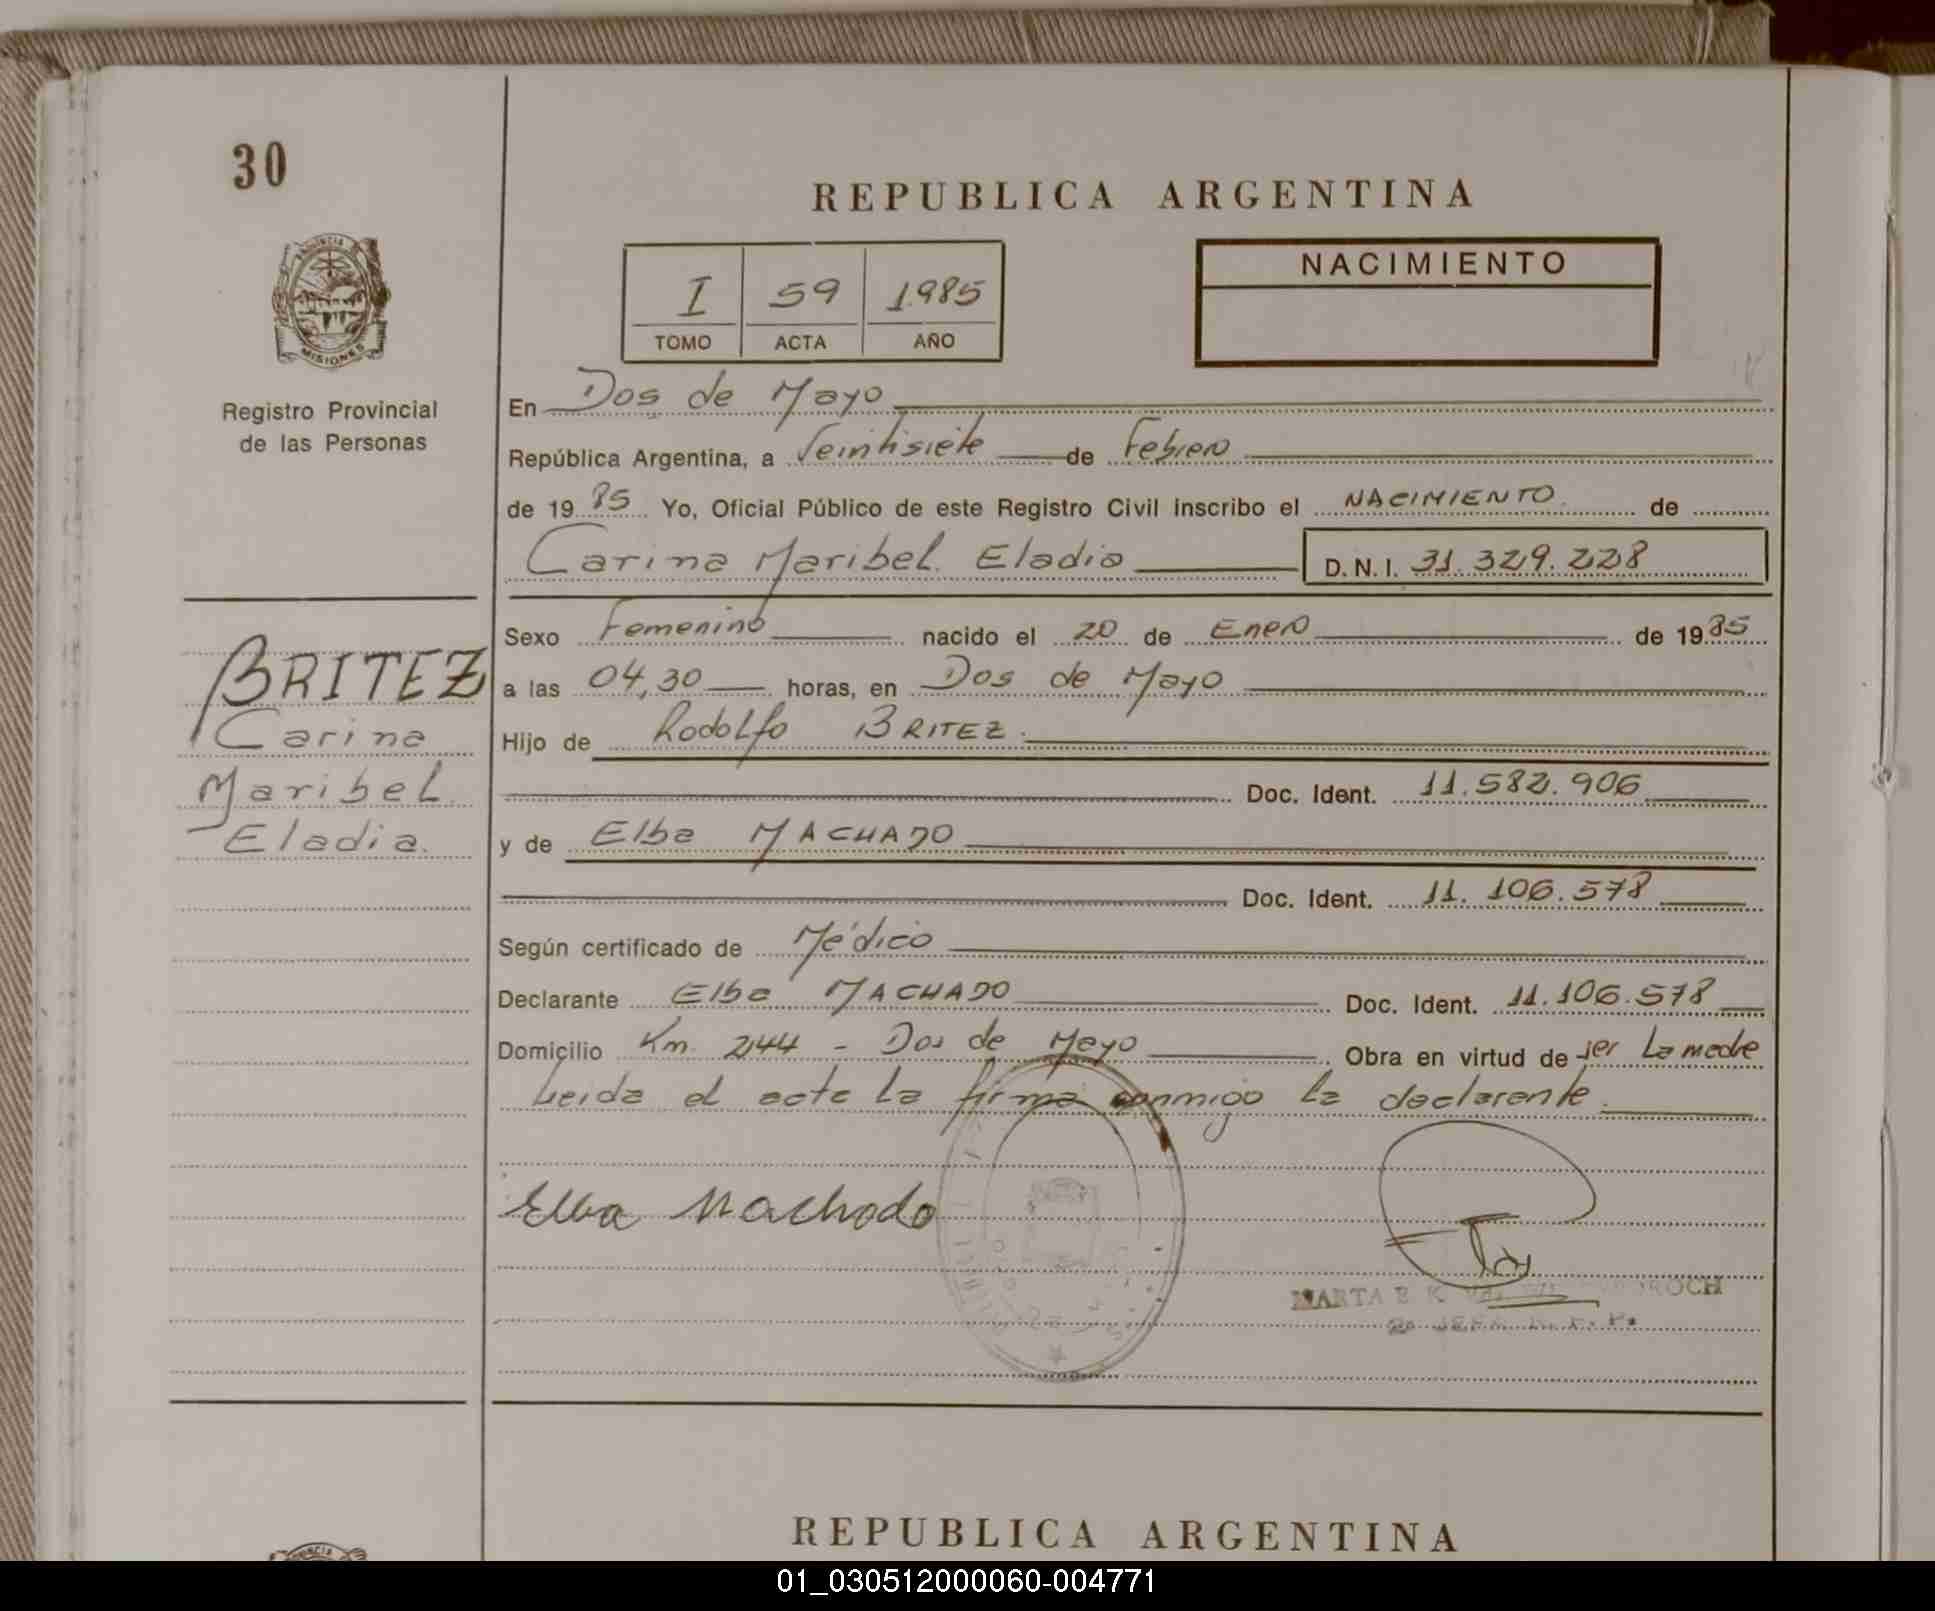 30
REPUBLICA ARGENTINA
PROVINCIA DE
MISIONES
Registro Provincial
de las Personas
I 59 1.985
TOMO ACTA AÑO
NACIMIENTO
En Dos de Mayo
República Argentina, a Veintisiete de Febrero
de 19 85 Yo, Oficial Público de este Registro Civil inscribo el NACIMIENTO de
Carina Maribel Eladia D.N.I. 31.329.228
BRITEZ
Carina
Maribel
Eladia.
Sexo Femenino nacido el 20 de Enero de 19 85
a las 04,30 horas, en Dos de Mayo
Hijo de Rodolfo BRITEZ.
Doc. Ident. 11.582.906
y de Elba MACHADO
Doc. Ident. 11.106.578
Según certificado de Médico
Declarante Elba MACHADO Doc. Ident. 11.106.578
Domicilio Km. 244 - Dos de Mayo Obra en virtud de ser La madre
Leida el acta La firma conmigo la declarante.
Elba Machado
MARTA E. K. OROCH
JEFE R. P. P.
REPUBLICA ARGENTINA
01_030512000060-004771